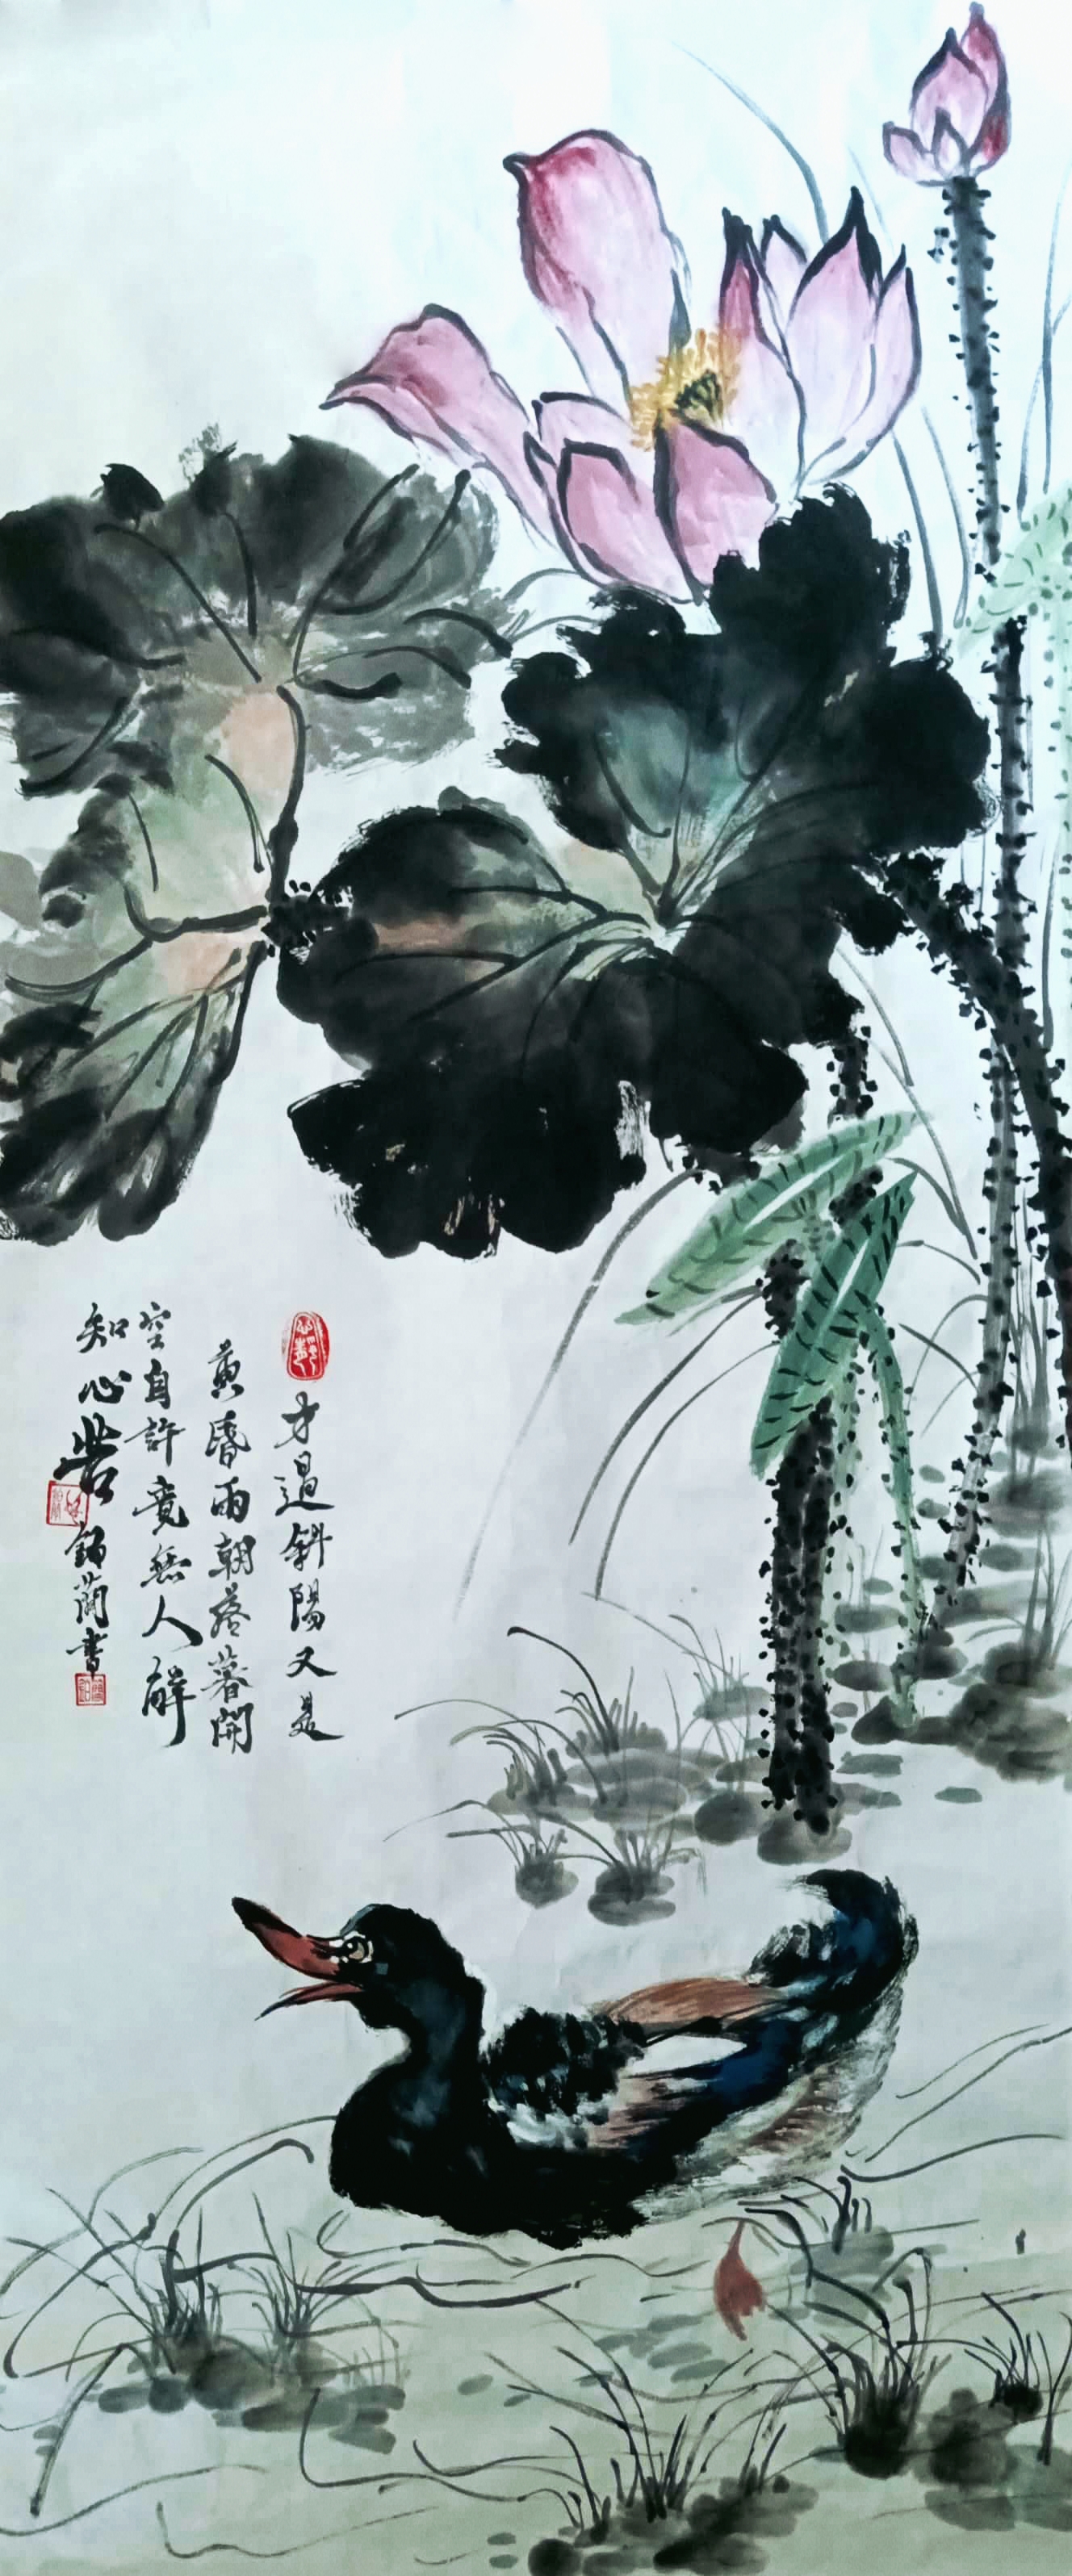 才過斜陽又是
黄昏雨朝落暮開
空自許竟無人解
知心苦
蘭書